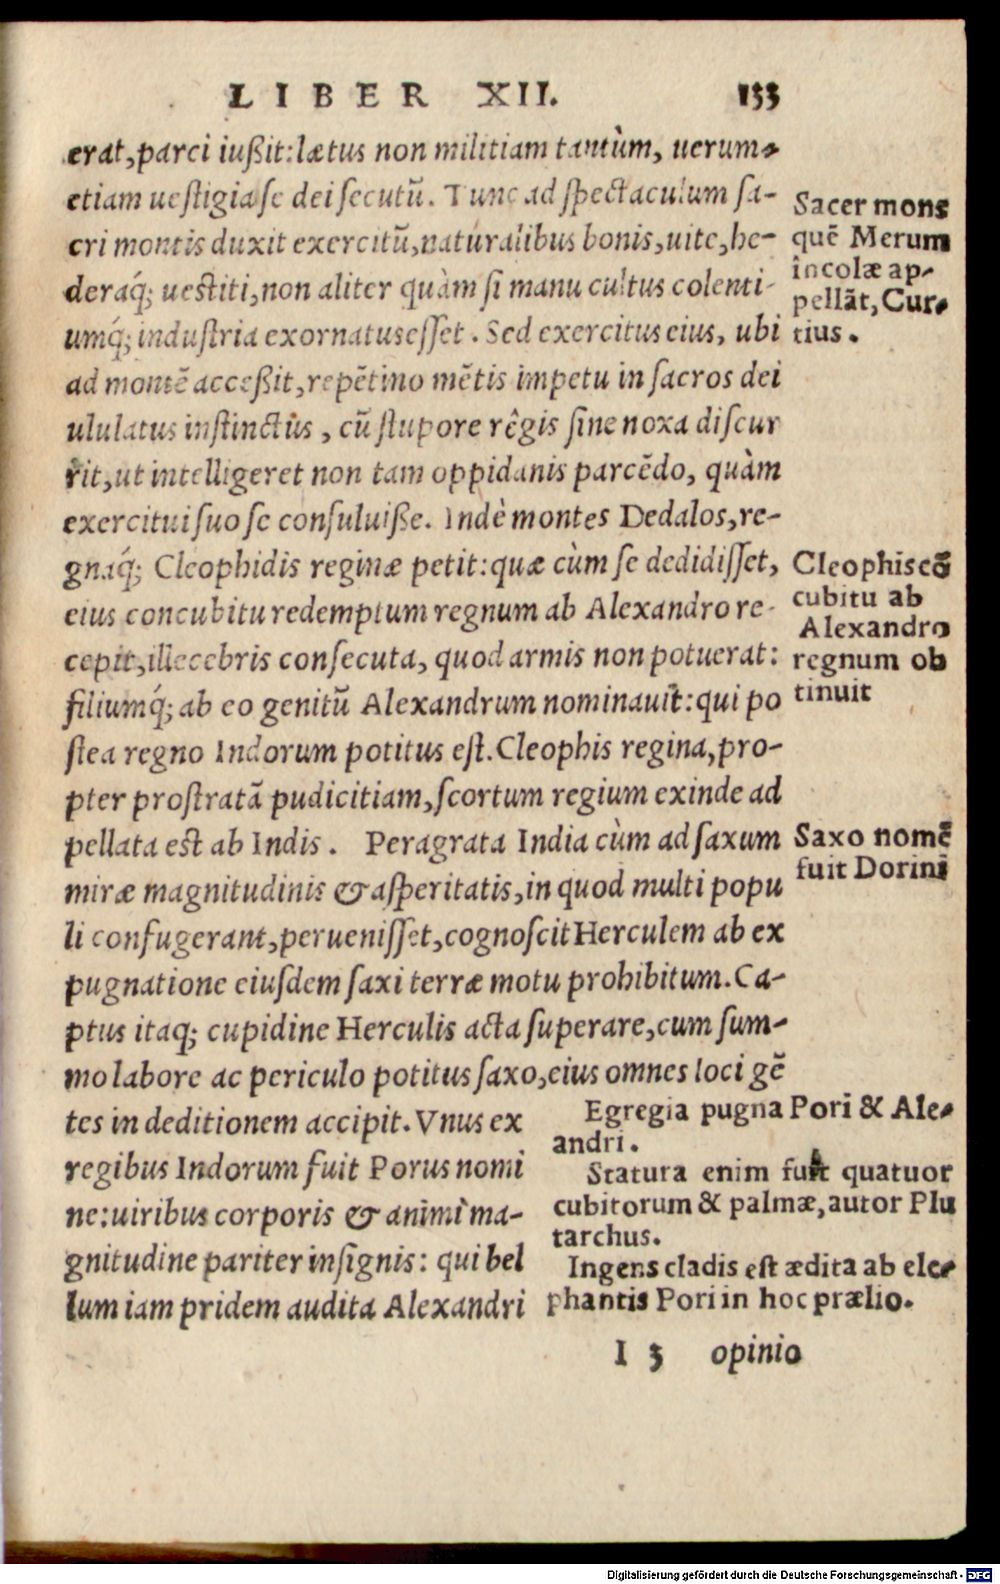 LIBER XII. 133
erat, parci iußit: lætus non militiam tantùm, uerum-
etiam uestigia se dei secutũ. Tunc ad spectaculum sa-
cri montis duxit exercitũ, naturalibus bonis, uite, he-
deraq́; uestiti, non aliter quàm si manu cultus colenti-
umq́; industria exornatus esset. Sed exercitus eius, ubi
ad montẽ acceßit, repẽtino mẽtis impetu in sacros dei
ululatus instinctus, cũ stupore regis sine noxa discur
rit, ut intelligeret non tam oppidanis parcẽdo, quàm
exercitui suo se consuluiße. Indè montes Dedalos, re-
gnaq́; Cleophidis reginæ petit: quæ cùm se dedidisset,
eius concubitu redemptum regnum ab Alexandro re-
cepit, illecebris consecuta, quod armis non potuerat:
filiumq́; ab eo genitũ Alexandrum nominauit: qui po
stea regno Indorum potitus est. Cleophis regina, pro-
pter prostratã pudicitiam, scortum regium exinde ad
pellata est ab Indis. Peragrata India cùm ad saxum
miræ magnitudinis & asperitatis, in quod multi popu
li confugerant, peruenisset, cognoscit Herculem ab ex
pugnatione eiusdem saxi terræ motu prohibitum. Ca-
ptus itaq; cupidine Herculis acta superare, cum sum-
mo labore ac periculo potitus saxo, eius omnes loci gẽ
tes in deditionem accipit. Vnus ex
regibus Indorum fuit Porus nomi
ne: uiribus corporis & animi ma-
gnitudine pariter insignis: qui bel
lum iam pridem audita Alexandri
Sacer mons
quẽ Merum
incolæ ap-
pellãt, Cur-
tius.
Cleophis cõ
cubitu ab
Alexandro
regnum ob
tinuit
Saxo nomẽ
fuit Dorini
Egregia pugna Pori & Ale-
andri.
Statura enim fuit quatuor
cubitorum & palmæ, autor Plu
tarchus.
Ingens cladis est ædita ab ele-
phantis Pori in hoc prælio.
I 3 opinio
Digitalisierung gefördert durch die Deutsche Forschungsgemeinschaft - DFG